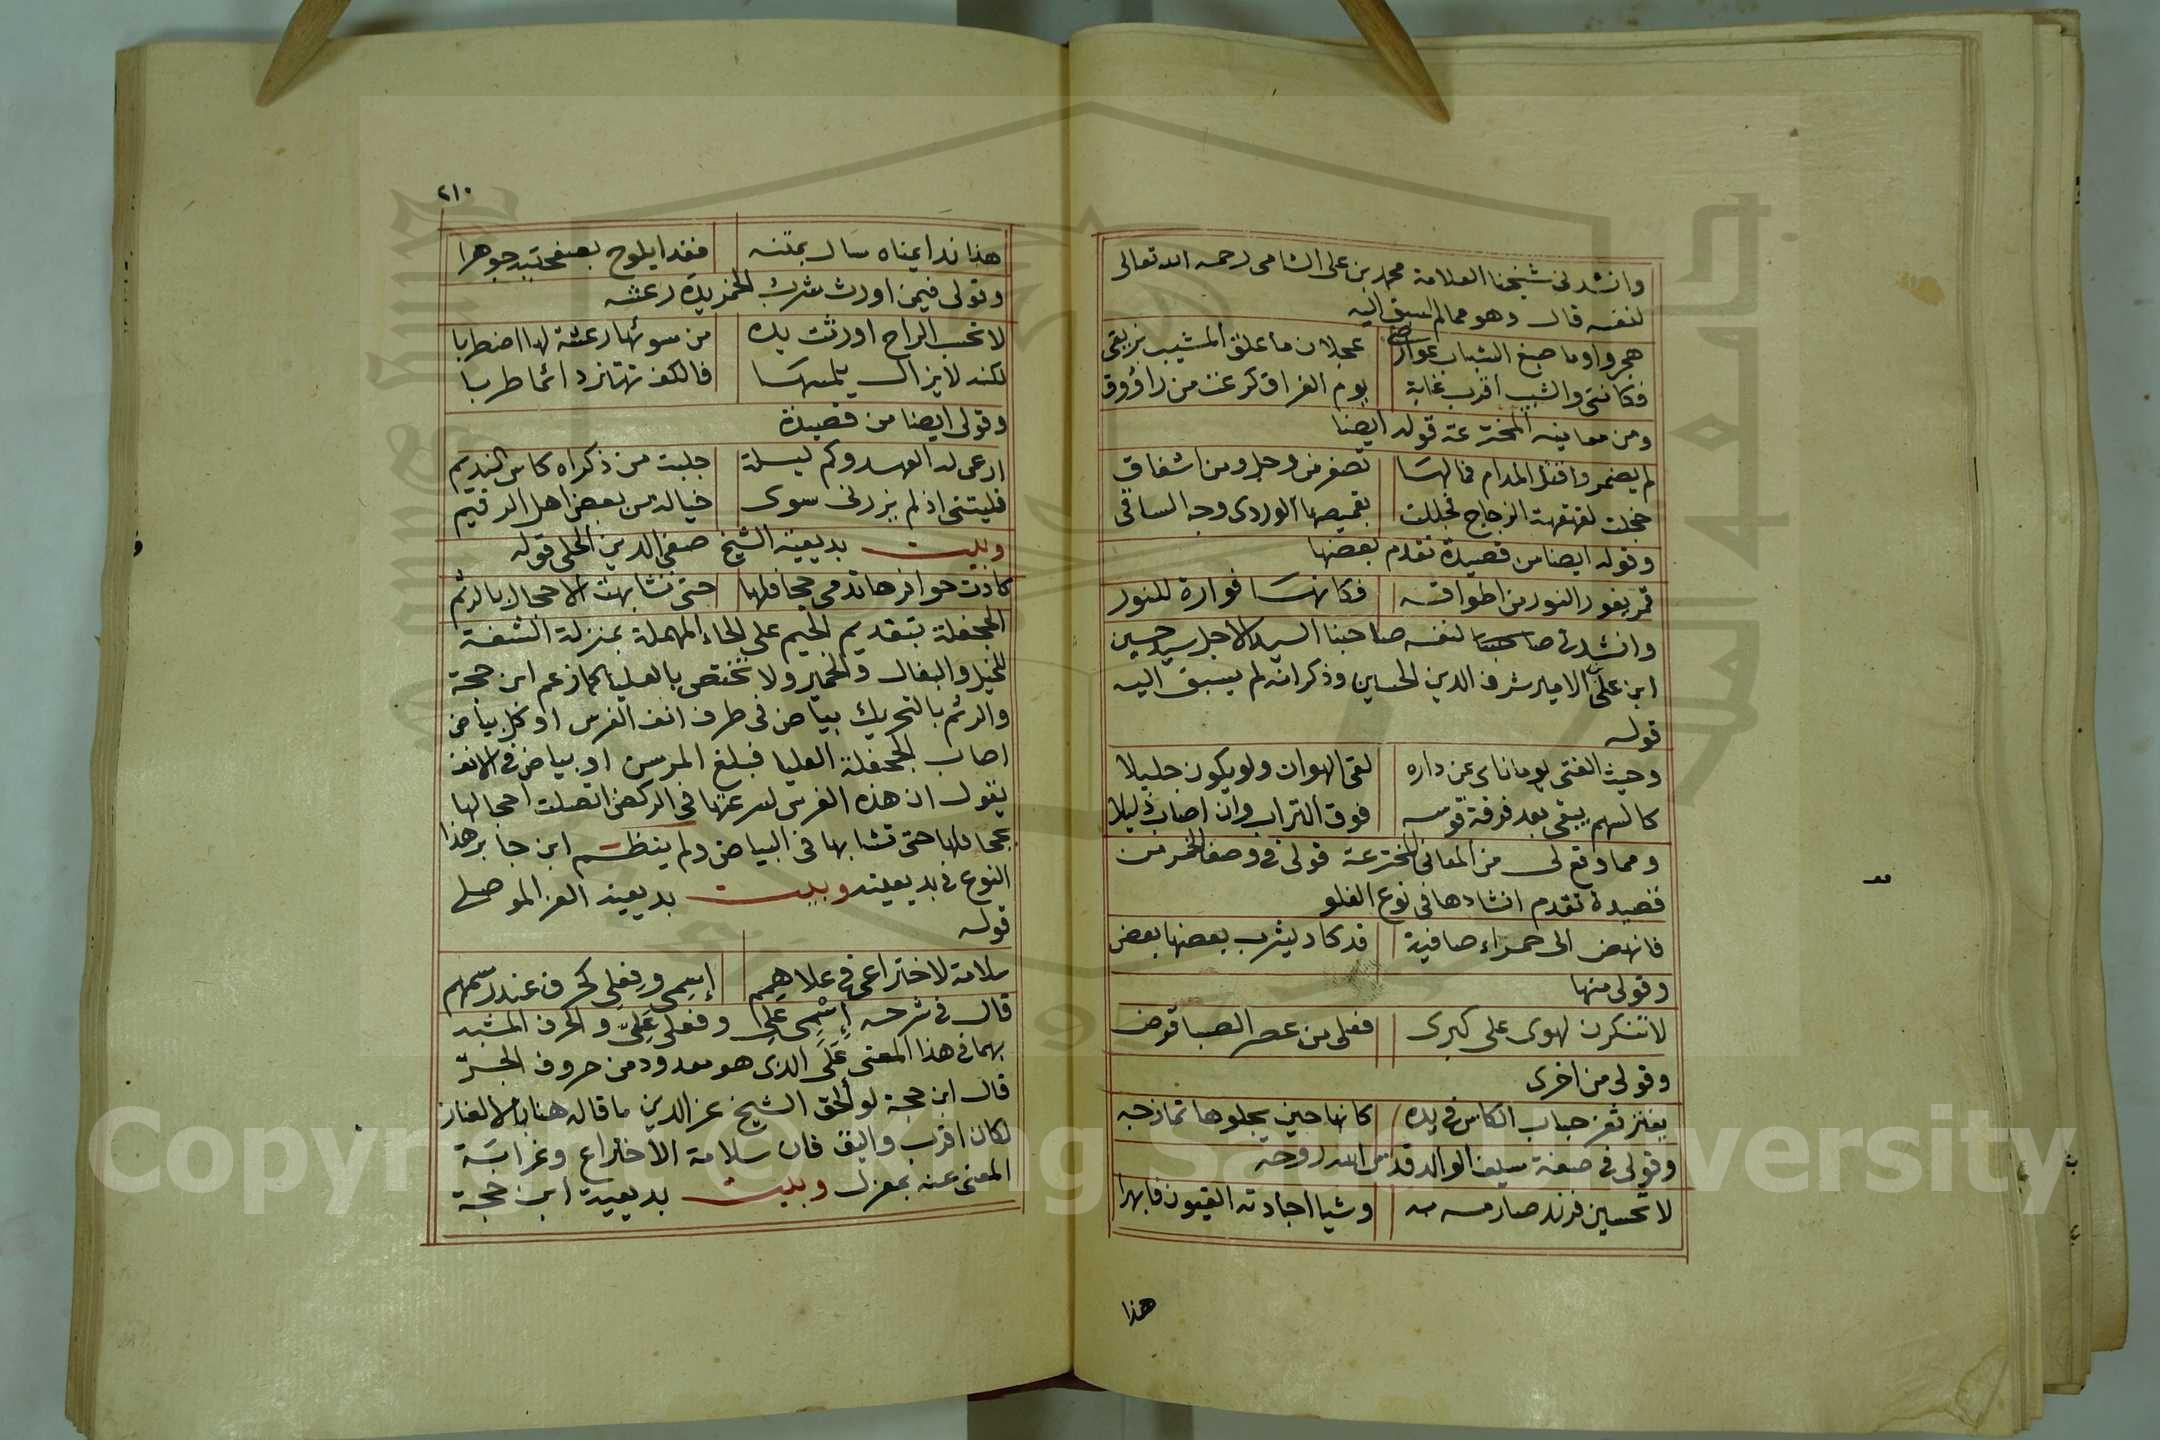 وانشدنى شيخنا العلامة محمد بن على الشامى رحمه الله تعالى
لنفسه قال وهو مما لم يسبق اليه
هجروا وما صبغ الشباب عوارضى عجلان ما علق المشيب بزيقى
فكاننى والشيب اقرب غاية يوم الفراق كرعت من راووق
ومن معانيه المخترعة قوله ايضا
لم يضمروا قتل المدام فما لها تصفر من وجل ومن اشفاق
خجلت لقهقهة الزجاج فجللت بقميصها الوردى وجه الساقى
وقوله ايضا من قصيدة تقدم بعضها
قمر يفور النور من اطواقه فكانها فوارة للنور
وانشدنى صاحبنا لنفسه صاحبنا السيد الاجل سيد حسين
ابن على الامير شرف الدين الحسين وذكر انه لم يسبق اليه
قوله
وحيث الفتى يوما ناى عن داره لقى الهوان ولو يكون جليلا
كالسهم يبقى بعد فرقة قوسه فوق التراب وان اصاب ذليلا
ومما وقع لى من المعانى المخترعة قولى فى وصف الخمر من
قصيدة تقدم انشادها فى نوع الغلو
فانهض الى حمراء صافية قد كاد يشرب بعضها بعض
وقولى منها
لا تنكرن لهوى على كبرى فعلى من عصر الصبا قرض
وقولى من اخرى
يفتر ثغر حباب الكاس فى يده كانها حين يجلوها تمازجه
وقولى فى صفة سيف الوالد قدس الله روحه
لا تحسبن فرند صارمه به وشيا اجادته القيون فابهرا
هذا
٢١٠
هذا ندا يمناه سال بمتنه فغدا يلوح بصفحتيه جوهرا
وقولى فيمن اورث شرب الخمر يده رعشه
لا تحسب الراح اورثت يده من سوئها رعشة لها اضطربا
لكنه لا يزال يلمسها فالكف تهتز دائما طربا
وقولى ايضا من قصيدة
ارعى له العهد وكم ليلة جلبت من ذكراه كاس النديم
فليتنى اذ لم يزرنى سوى خياله من بعض اهل الرقيم
وبيت بديعية الشيخ صفى الدين الحلى قوله
كادت حوافرها تدمى جحافلها حتى تشابهت الاحجال بالرثم
الجحفلة بتقديم الجيم على الحاء المهملة بمنزلة الشفة
للخيل والبغال والحمير ولا تختص بالعليا كما زعم ابن حجة
والرثم بالتحريك بياض فى طرف انف الفرس او كل بياض
اصاب الجحفلة العليا فبلغ المرسن او بياض فى الانف
يقول ان هذه الفرس لسرعتها فى الركض اتصلت احجالها
بجحافلها حتى تشابها فى البياض ولم ينظم ابن جابر هذا
النوع فى بديعيته وبيت بديعية العز الموصلى
قوله
سلامة لاختراعى فى علا همم إسمى وفعلى كحرف عند رسمهم
قال فى شرحه إسمى على وفعلى على والحرف المشبه
بهما فى هذا المعنى على الذى هو معدود من حروف الجر
قال ابن حجة لو الحق الشيخ عز الدين ما قاله هنا بالالغاز
لكان اقرب واليق فان سلامة الاختراع وغرابة
المعنى عنه بمعزل وبيت بديعية ابن حجة
Copyright © King Saud University